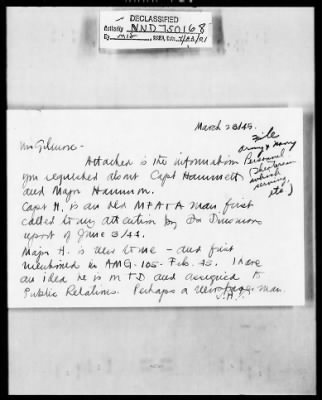 DECLASSIFIED
Authority NND 750168
By NARA, Date
March 28/45.
Mr Gilmore -
Attached is the information
you requested about Capt Hammett
and Major Hammon.
Capt H. is an old MFAA man first
called to my attention by Dr Dinsmoors
report of June 3/44.
Major H. is new to me - and first
mentioned in AMG-105- Feb. 45. I have
an idea he is in TD and assigned to
Public Relations. Perhaps a newspaper man.
File
Army & Navy
Personnel
which
serving,
etc)